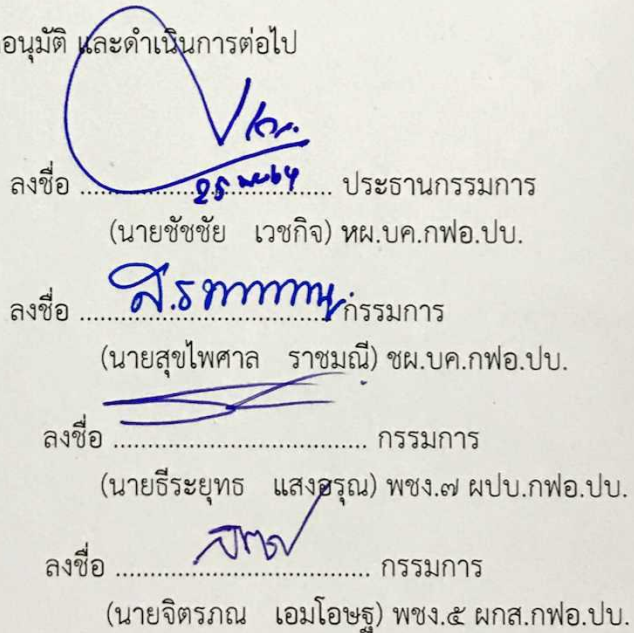 อนุมัติ และดำเนินการต่อไป
ลงชื่อ .................................. ประธานกรรมการ
25 พย 64
(นายชัชชัย เวชกิจ) หผ.บค.กฟอ.ปบ.
ลงชื่อ .................................. กรรมการ
(นายสุขไพศาล ราชมณี) ชผ.บค.กฟอ.ปบ.
ลงชื่อ .................................. กรรมการ
(นายธีระยุทธ แสงอรุณ) พชง.๗ ผปบ.กฟอ.ปบ.
ลงชื่อ .................................. กรรมการ
(นายจิตรภณ เอมโอษฐ) พชง.๕ ผกส.กฟอ.ปบ.